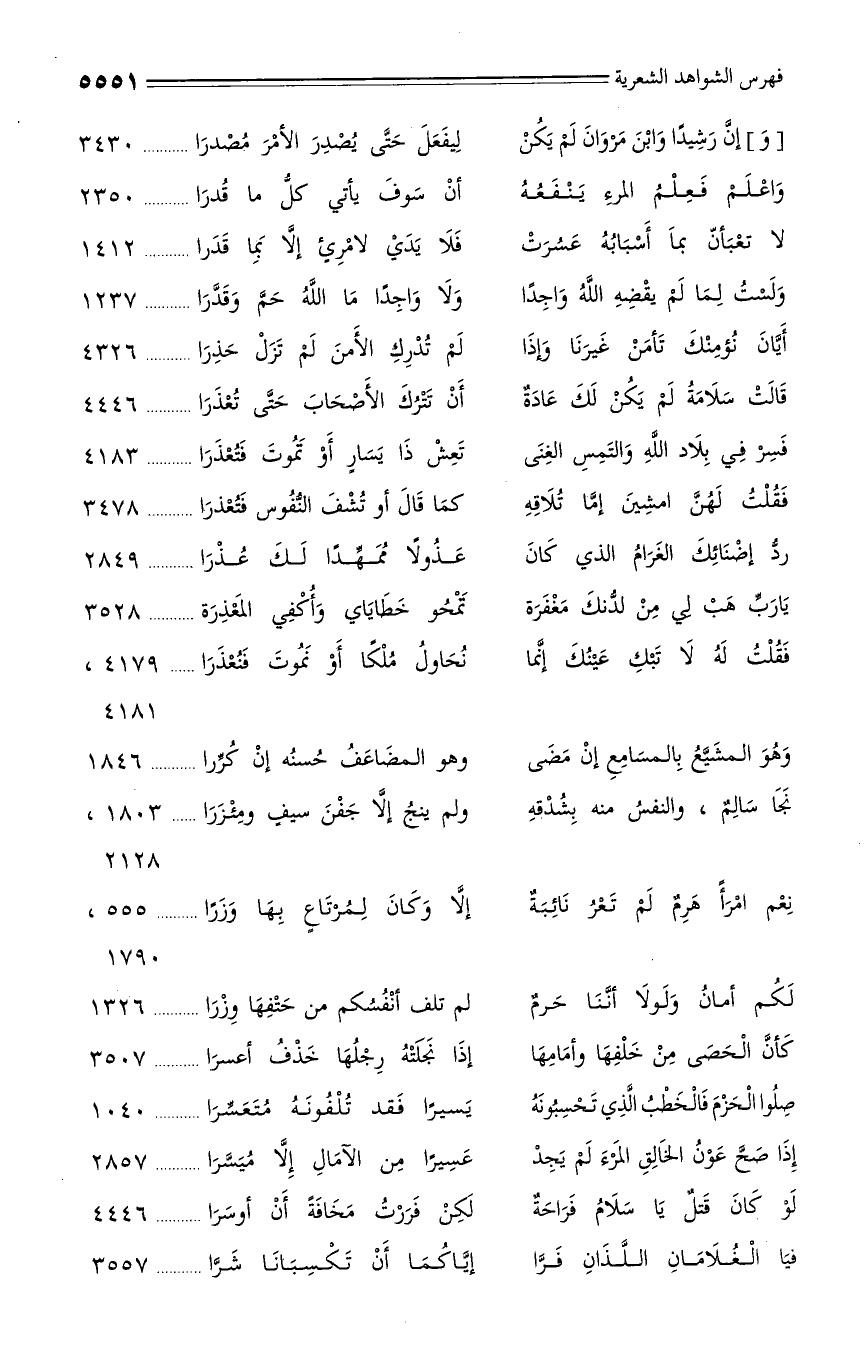 فهرس الشواهد الشعرية ٥٥٥١
[ وَ ] إنَّ رَشِيدًا وَابْنَ مَرْوَانَ لَمْ يَكُنْ لِيفَعَلَ حَتَّى يُصْدِرَ الأمْرَ مُصْدرَا .......... ٣٤٣٠
وَاعْلَمْ فَعِلْمُ المرءِ يَنْفَعُهُ أنْ سَوفَ يأتي كلُّ ما قُدرَا .......... ٢٣٥٠
لا تعْبَأنّ بماَ أَسْبَابُهُ عَسُرَتْ فَلَا يَدَيْ لامْرِئٍ إلَّا بَمِا قَدَرا .......... ١٤١٢
وَلَسْتُ لِمَا لَمْ يقْضِهِ اللَّهُ وَاجِدًا وَلَا وَاجِدًا مَا اللَّهُ حَمَّ وَقَدَّرَا .......... ١٢٣٧
أَيَّانَ نُؤمِنْكَ تَأمَنْ غَيرَنَا وَإذَا لَمْ تُدْرِكِ الأَمنَ لَمْ تَزَلْ حَذِرَا .......... ٤٣٢٦
قَالَتْ سَلَامَةُ لَمْ يَكُنْ لَكَ عَادَةٌ أَنْ تَتْرُكَ الأَصْحَابَ حَتَّى تُعْذَرَا .......... ٤٤٤٦
فَسِرْ فِي بِلَاد اللَّهِ وَالتَمِسِ الغِنَى تَعِشْ ذَا يَسَارٍ أَوْ تَمُوتَ فَتُعْذَرَا .......... ٤١٨٣
فَقُلْتُ لَهُنَّ امشِينَ إمَّا تُلَاقِهِ كمَا قَالَ أو تُشْفَ النُّفُوس فَتُعْذرَا .......... ٣٤٧٨
ردُّ إضْنَائِكَ الغَرَامُ الذي كَانَ عَذُولًا مُمَهِّدًا لَكَ عُذْرَا .......... ٢٨٤٩
يَارَبِّ هَبْ لِي مِنْ لدُّنكَ مَغْفَرَة تَمْحُو خَطَايَاي وَأُكْفِي المَعْذِرَة .......... ٣٥٢٨
فَقُلْتُ لَهُ لَا تَبْكِ عَيْنُكَ إنَّما نُحَاولُ مُلْكًا أَوْ نَمُوتَ فَنُعْذَرَا ...... ٤١٧٩ ،
٤١٨١
وَهُوَ المشَيَّعُ بِالمسَامِعِ إنْ مَضَى وهو المضَاعَفُ حُسنُه إنْ كُرِّرا .......... ١٨٤٦
نَجَا سَالِمٌ ، والنفسُ منه بِشُدْقهِ ولم ينجُ إلَّا جَفْنَ سيفٍ ومِئْزَرَا ...... ١٨٠٣ ،
٢١٢٨
نِعْم امْرَأً هَرِمٌ لَمْ تَعْرُ نَائِبَةٌ إلَّا وَكَانَ لِمُرْتَاعٍ بِهَا وَزَرًا .......... ٥٥٥ ،
١٧٩٠
لَكُم أمانُ وَلَولَا أنَّنَا حَرمٌ لم تلف أنْفُسُكم من حَتْفِهَا وِزْرَا .......... ١٣٢٦
كَأنَّ الْحَصَى مِنْ خَلْفِهَا وأمَامِهَا إذَا نَجَلَتْهُ رِجْلُهَا خَذْفُ أعسرَا .......... ٣٥٠٧
صِلُوا الْحَزْمَ فَالْخَطْبُ الَّذِي تَحْسِبُونَهُ يَسيرًا فَقد تُلْفُونَهُ مُتَعَسِّرَا .......... ١٠٤٠
إذَا صَحَّ عَوْنُ الخَالِقِ المَرْءَ لَمْ يَجِدْ عَسِيرًا مِن الآمَالِ إلَّا مُيَسَّرَا .......... ٢٨٥٧
لَوْ كَانَ قَتلٌ يَا سَلَامُ فَرَاحَةٌ لَكِنْ فَرَرْتُ مَخَافَةً أَنْ أوسَرَا .......... ٤٤٤٦
فيَا الْغُلَامَانِ اللَّذَانِ فَرَّا إيَّاكُمَا أَنْ تَكْسِبَانَا شَرَّا .......... ٣٥٥٧